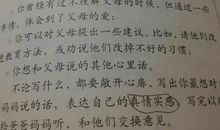 ·你曾经有过不理解父母的时候,但通过一些
事情,体会到了父母的爱;
·你可以对父母提出一些建议,比如,请他们改
进教育方法,或劝说他们改掉不好的习惯;
·你想和父母说的其他心里话。
不论写什么,都要敞开心扉,写出你最想对
妈妈说的话,表达自己的真情实感,写完以
给爸爸妈妈听,和他们交换意见。